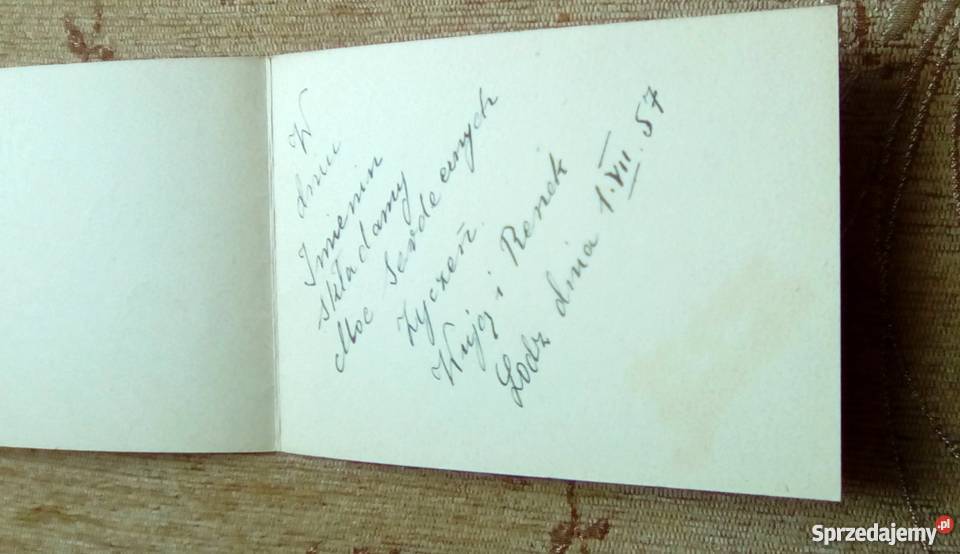 W
dniu
Imienin
składamy
Moc Serdecznych
Życzeń.
Wujej i Renek
Łodz dnia 1.VII.57
Sprzedajemy.pl